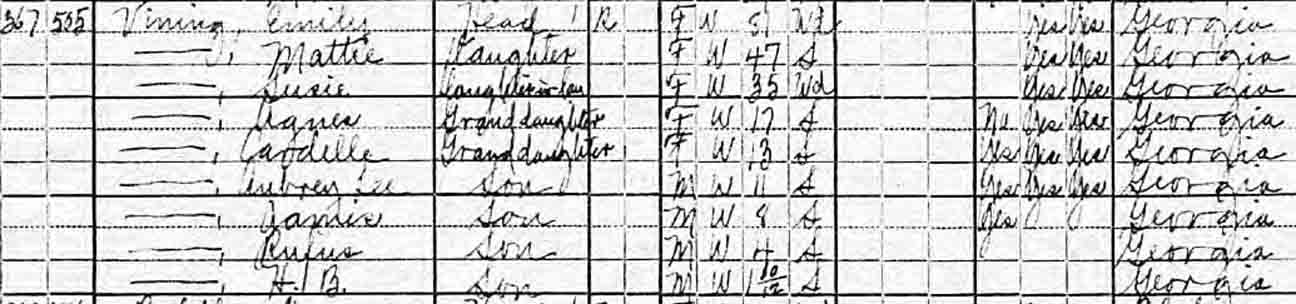 367 555 Vining, Emily Head 1 R F W 81 Wd Yes Yes Georgia
——, Mattie Daughter F W 47 S Yes Yes Georgia
——, Susie Daughter in law F W 35 Wd Yes Yes Georgia
——, Agnes Grand daughter F W 17 S No Yes Yes Georgia
——, Grand daughter F W 13 S Yes Yes Yes Georgia
——, Aubrey Lee Son M W 11 S Yes Yes Yes Georgia
——, James Son M W 8 S Yes Georgia
——, Rufus Son M W 4 S Georgia
——, H. B. Son M W 1 10/12 S Georgia